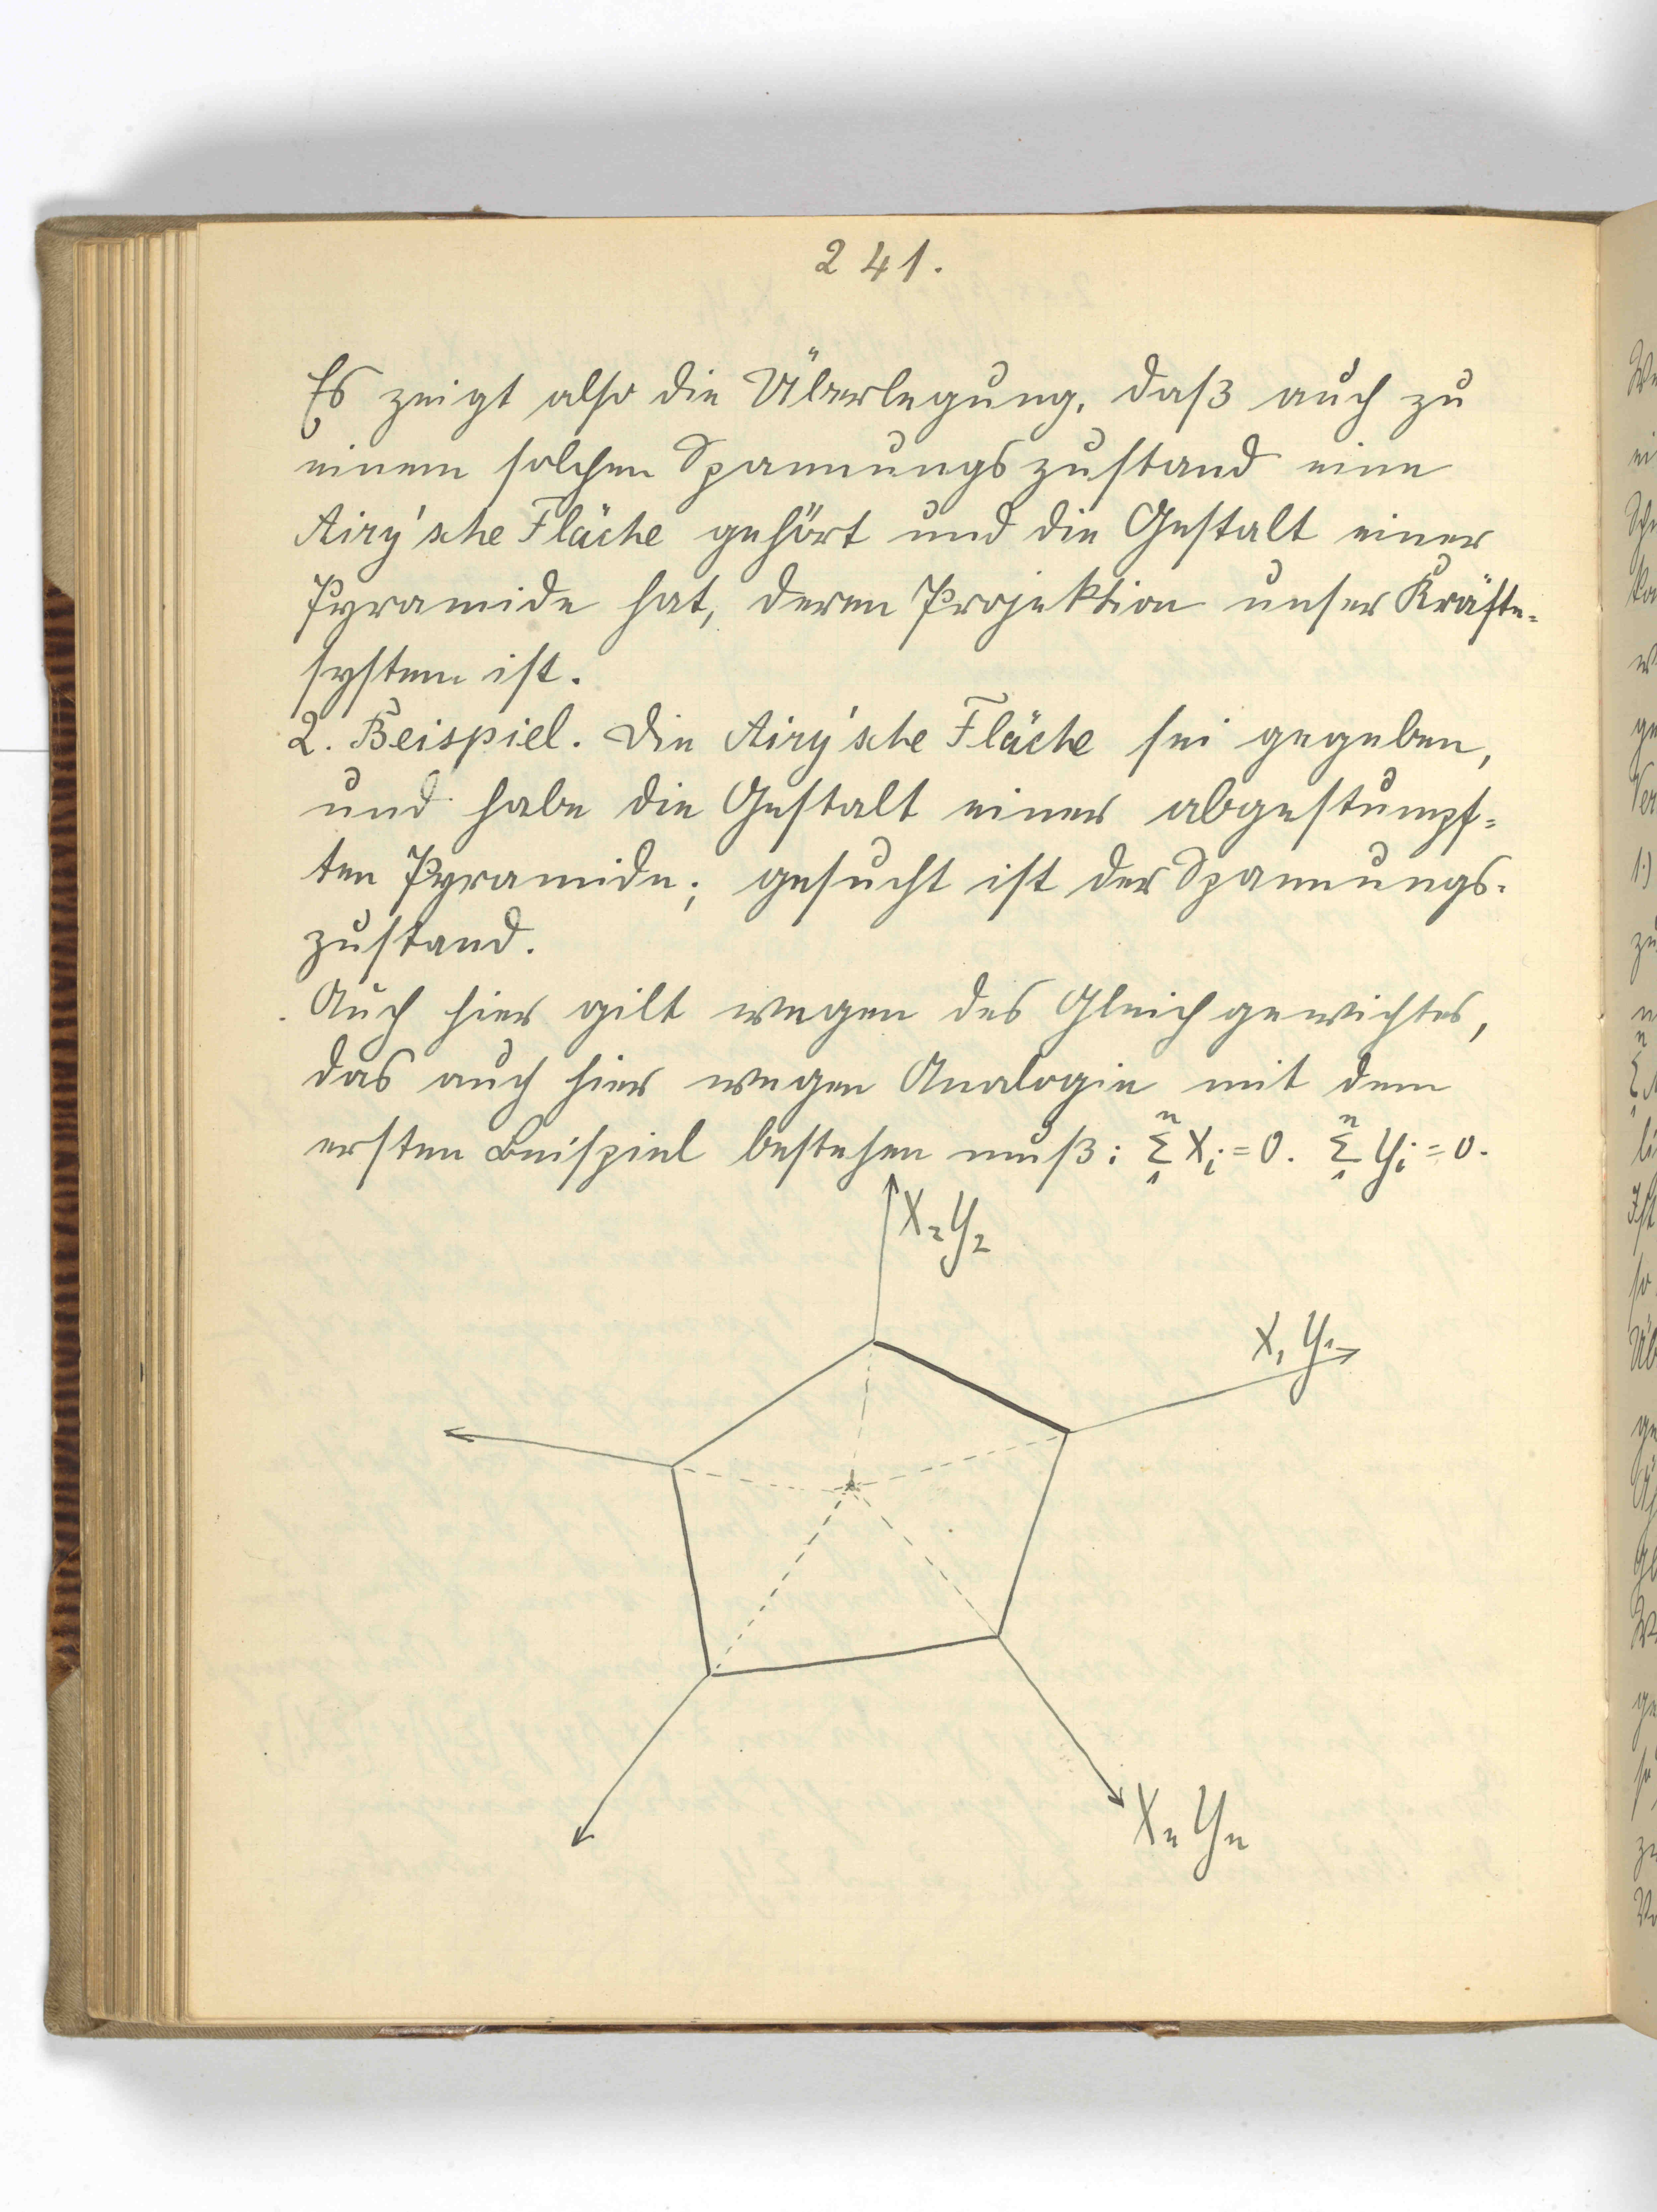 241.
Es zeigt also die Überlegung, daß auch zu
einem solchen Spannungszustand eine
Airy'sche Fläche gehört und die Gestalt einer
Pyramide hat, deren Projektion unser Kräfte-
system ist.
2. Beispiel. Die Airy'sche Fläche sei gegeben,
und habe die Gestalt einer abgestumpf-
ten Pyramide; gesucht ist der Spannungs-
zustand.
Auch hier gilt wegen des Gleichgewichtes,
das auch hier wegen Analogie mit dem
ersten Beispiel bestehen muß: n Σ 1 Xi = 0. n Σ 1 Yi = 0.
X2 Y2
X1 Y1
Xn Yn